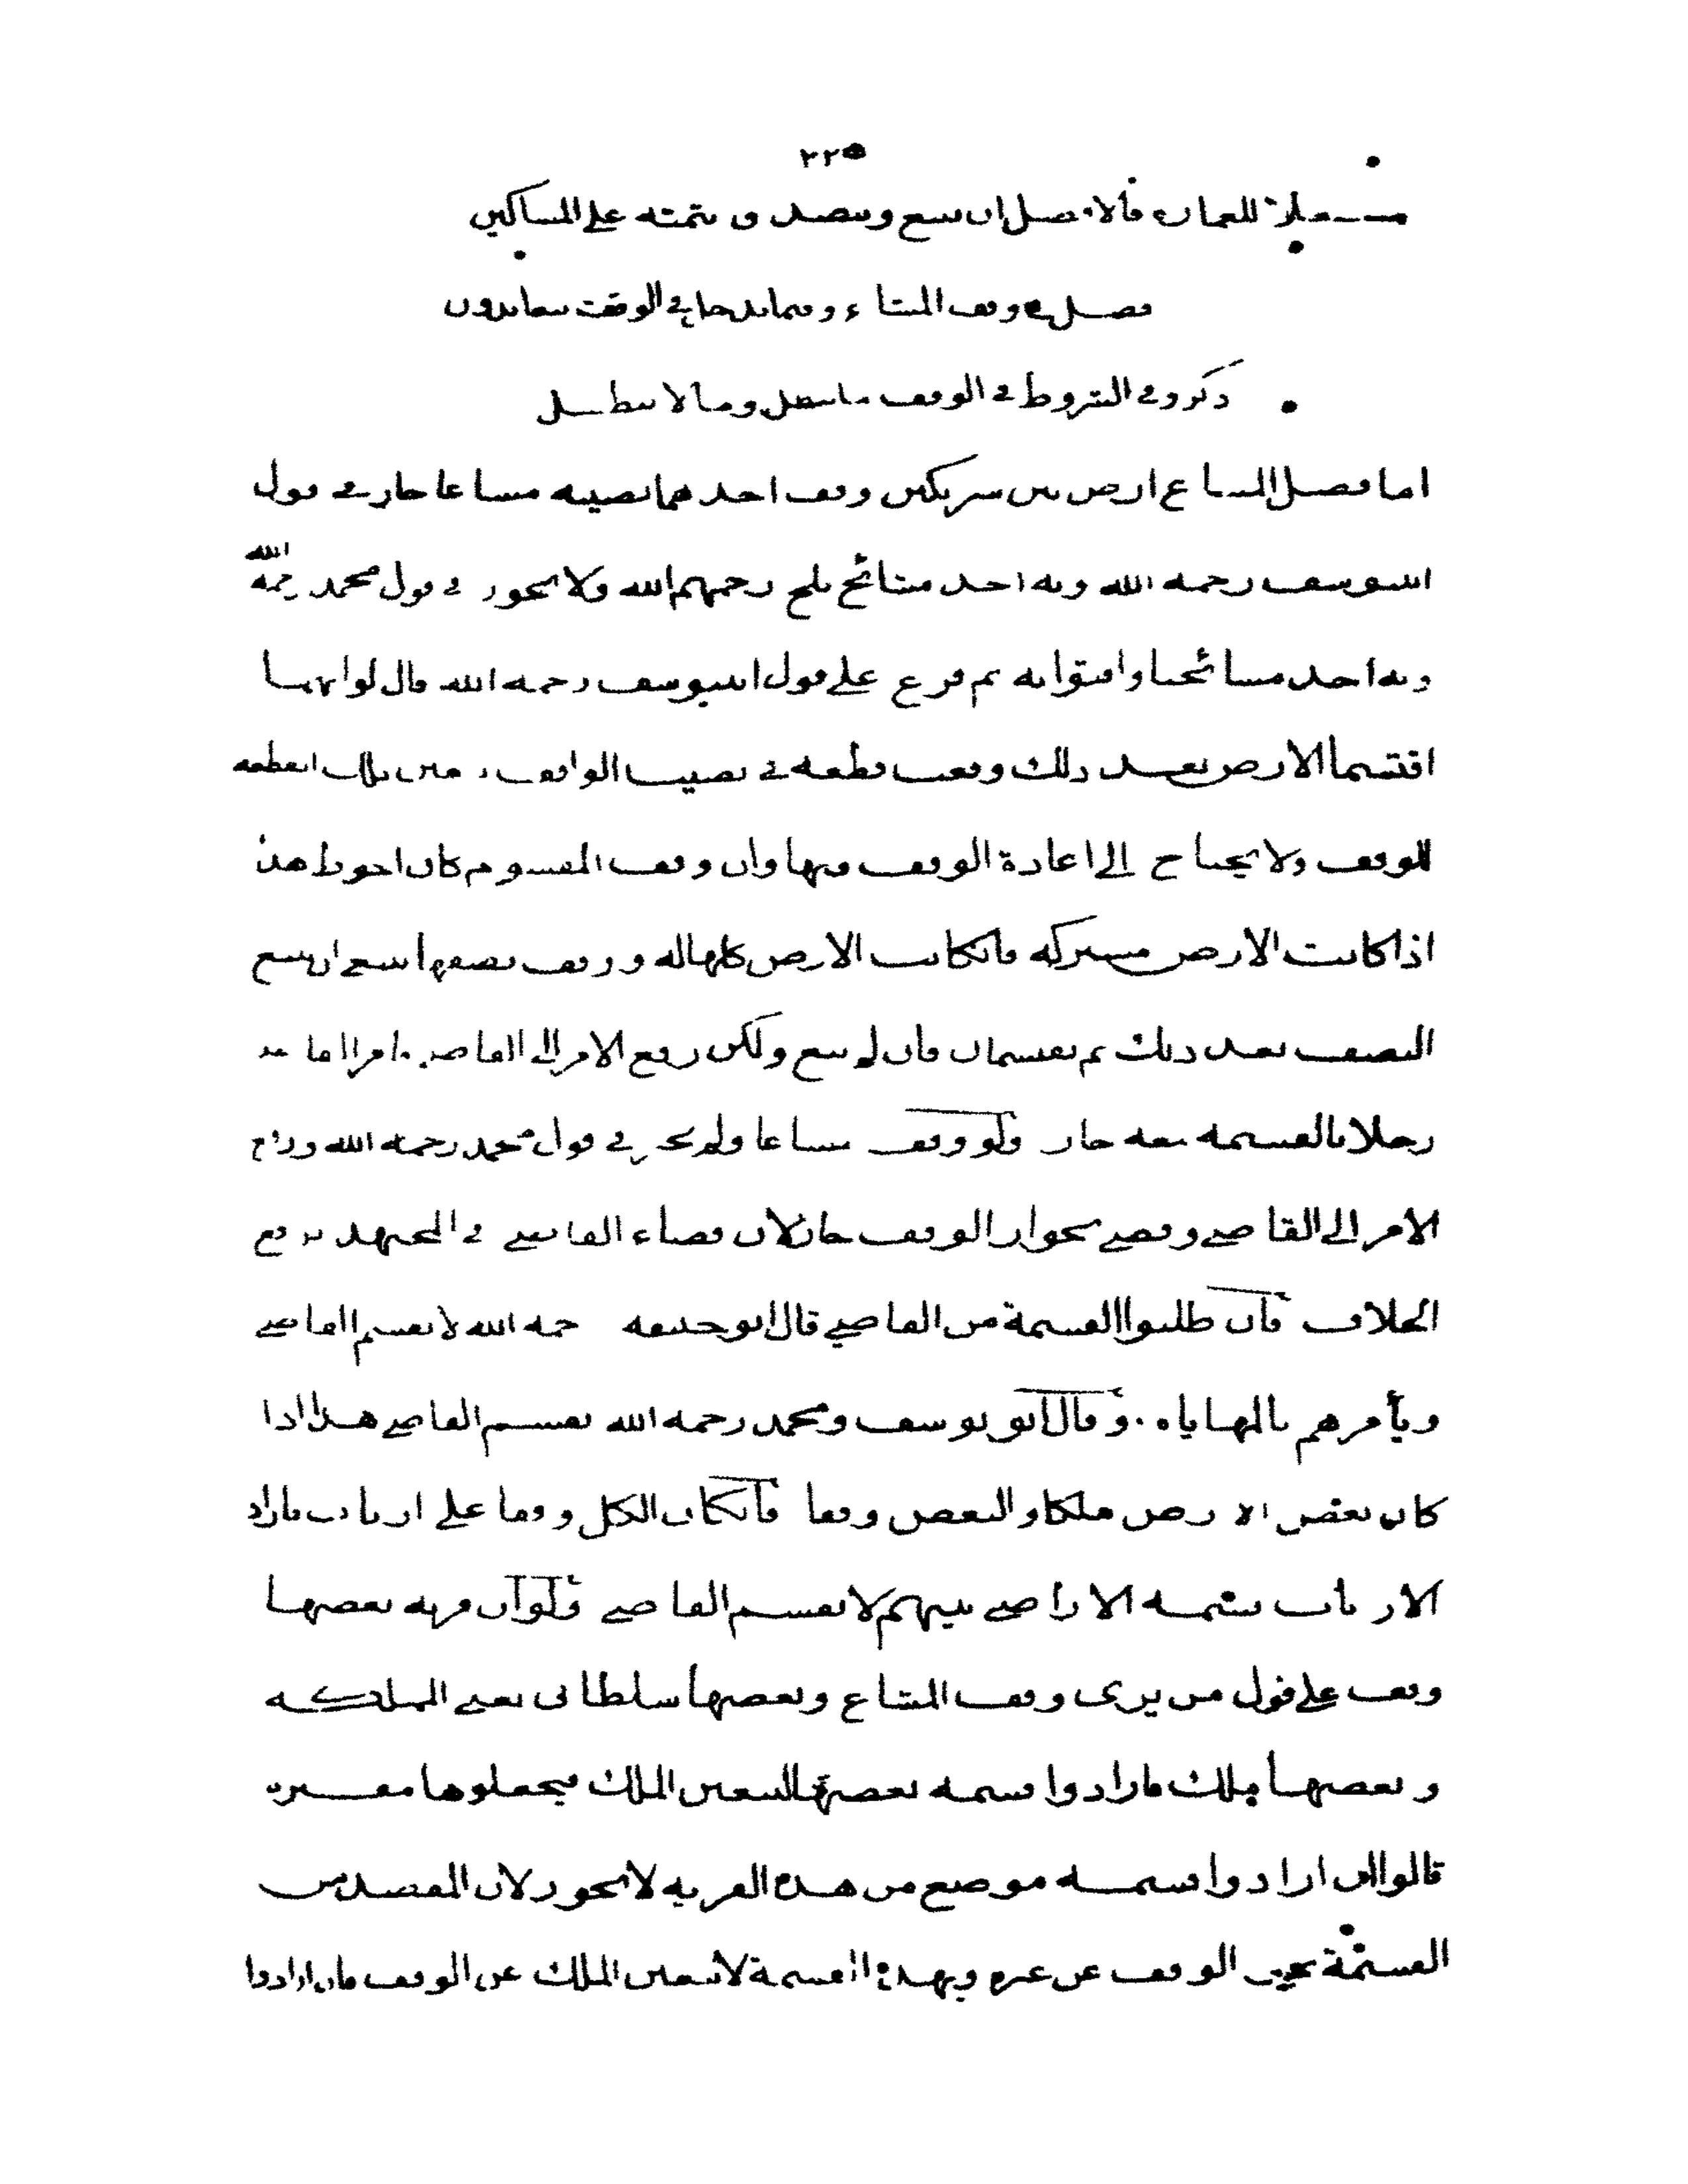 ٢٢٥
مستغلا للعمارة فالافضل ان يبيع ويتصدق بثمنه على المساكين
فصل في وقف المشاع وفيما يدخل في الوقف من غير
ذكر وفي الشروط في الوقف ما يبطل وما لا يبطل
اما فصل المشاع ارض بين شريكين وقف احدهما نصيبه مشاعا جاز في قول
ابي يوسف رحمه الله وبه اخذ مشائخ بلخ رحمهم الله ولا يجوز في قول محمد رحمه الله
وبه اخذ مشائخنا وافتوا به ثم فرع على قول ابي يوسف رحمه الله قال لو انهما
اقتسما الارض بعد ذلك وقعت قطعة في نصيب الواقف تعين تلك القطعة
للوقف ولا يحتاج الى اعادة الوقف فيها وان وقف المقسوم كان احوط هذا
اذا كانت الارض مشتركة فان كانت الارض كلها له ووقف نصفها ينبغي ان يبيع
النصف بعد ذلك ثم يقتسمان فان لم يبع ولكن رفع الامر الى القاضي فامر القاضي
رجلا بالقسمة معه جاز ولو وقف مشاعا ولم يجز في قول محمد رحمه الله ورفع
الامر الى القاضي وقضى بجواز الوقف جاز لان قضاء القاضي في المجتهد يرفع
الخلاف فان طلبوا القسمة من القاضي قال ابو حنيفة رحمه الله لا يقسم القاضي
ويأمرهم بالمهاياه وقال ابو يوسف ومحمد رحمه الله يقسم القاضي هذا اذا
كان بعض الارض ملكا والبعض وقفا فان كان الكل وقفا على ارباب فاراد
الارباب قسمة الاراضي بينهم لا يقسم القاضي ولو ان قرية بعضها
وقف على قول من يرى وقف المشاع وبعضها سلطاني يعني المملكة
وبعضها ملك فارادوا قسمة بعضها ليتعين الملك فيجعلوها مقبرة
قالوا ان ارادوا قسمة موضع من هذه القرية لا يجوز لان المقصد من
القسمة تمييز الوقف عن غيره وبهذه القسمة لا يتعين الملك عن الوقف فان ارادوا